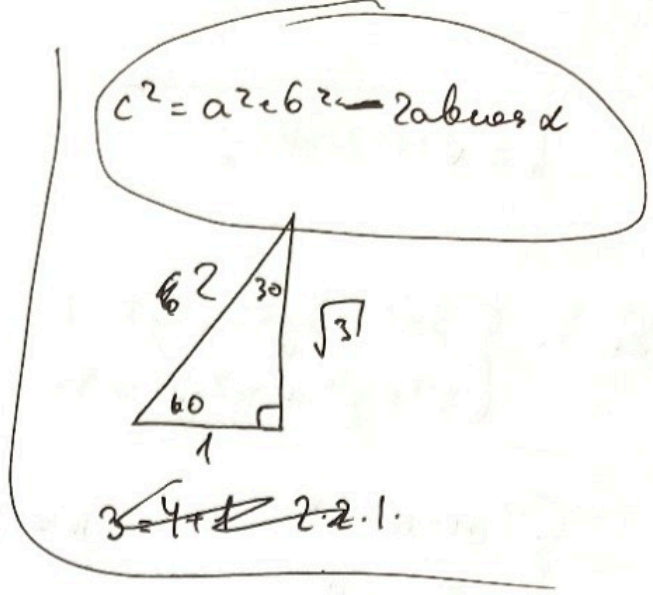 c² = a² + b² - 2ab cos α
2
30
√3
60
1
3 = 4 + 1 2·2·1·